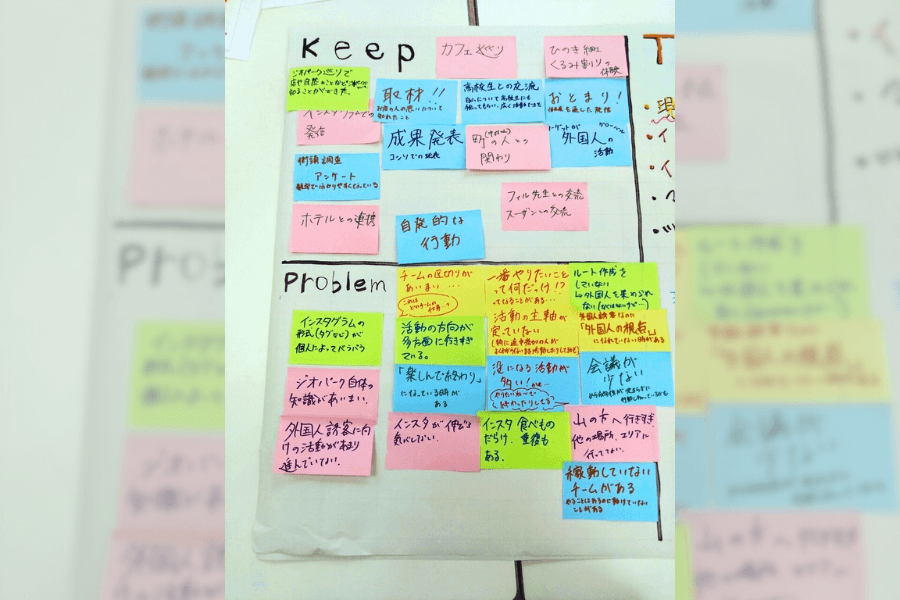 Keep
カフェ巡り
ひのき細工
くるみ割りの
体験
ジオパーク巡りで
取材!!
お店の人の思いについて
取れたこと
高校生との交流
おとまり!
インスタグラムでの
発信
成果発表
コンソでの発表
町の人との
関わり
ターゲットが
グローバル
外国人の
活動
街頭調査
アンケート
ホテルとの連携
自発的な
行動
フィル先生との交流
スーザンとの交流
Problem
チームの区切りが
あいまい…
一番やりたいこと
って何だっけ!?
ってなることがある…
ルート作成を
していない
外国人を集められ
ない
インスタグラムの
形式(タグなど)が
個人によってバラバラ
活動の方向が
多方面に行きすぎ
ている。
活動の主軸が
定っていない
外国人誘客なのに
「外国人の視点」
になれていない時がある
ジオパーク自体の
知識があいまい。
「楽しんで終わり」
になっている時が
ある
没になる活動が
多い!
会議が
少ない
外国人誘客に向
けの活動があまり
進んでいない。
インスタが伸びる
気がしない。
インスタ食べもの
だらけ、重複も
ある。
山の方へ行きすぎ、
他の場所、エリアに
行ってない。
稼動していない
チームがある
やることはあるのに動けていない
ことがある